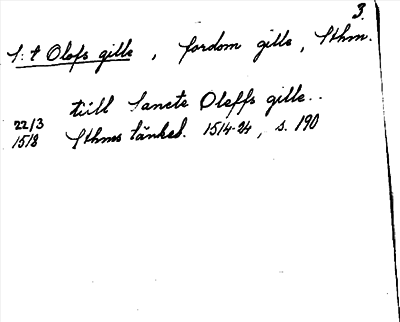 3.
S:t Olofs gille, fordom gille, Sthm.
tiill Sancte Oleffs gille..
22/3 1518 Sthms tänkeb. 1514-24, s. 190